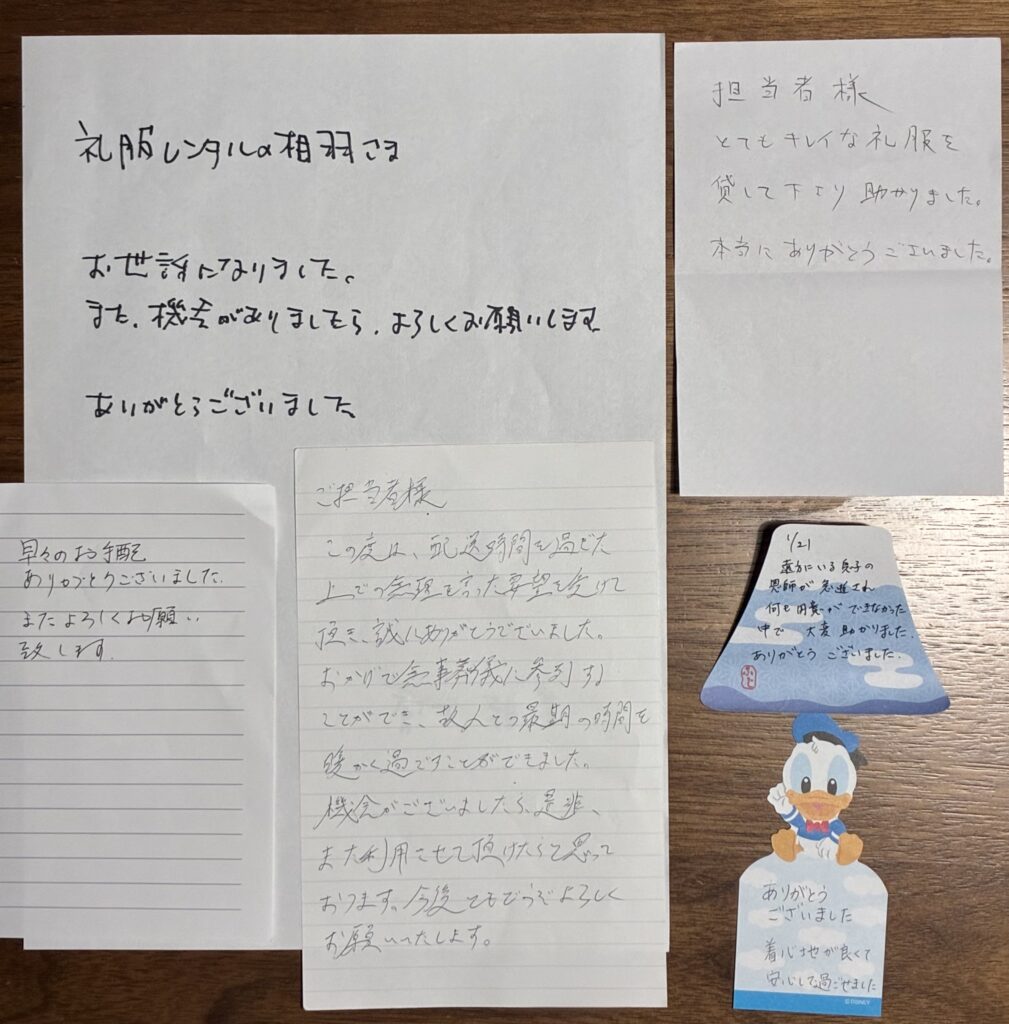 礼服レンタルの相羽さま
お世話になりました。
また、機会がありましたら、よろしくお願いします
ありがとうございました
担当者様
とてもキレイな礼服を
貸して下さり 助かりました。
本当にありがとうございました。
早々のお手配
ありがとうございました.
またよろしくお願い
致します.
ご担当者様
この度は、配送時間を過ぎた
上での無理を言った要望を受けて
頂き、誠にありがとうございました。
おかげで急事葬儀に参列する
ことができ、故人との最期の時間を
暖かく過ごすことができました。
機会がございましたら、是非、
また利用させて頂けたらと思って
おります。今後ともどうぞよろしく
お願いいたします。
1/21
遠方にいる息子の
恩師が急逝され
何も用意ができなかった
中で 大変 助かりました.
ありがとう ございました.
ありがとう
ございました
着心地が良くて
安心して過ごせました
© DISNEY